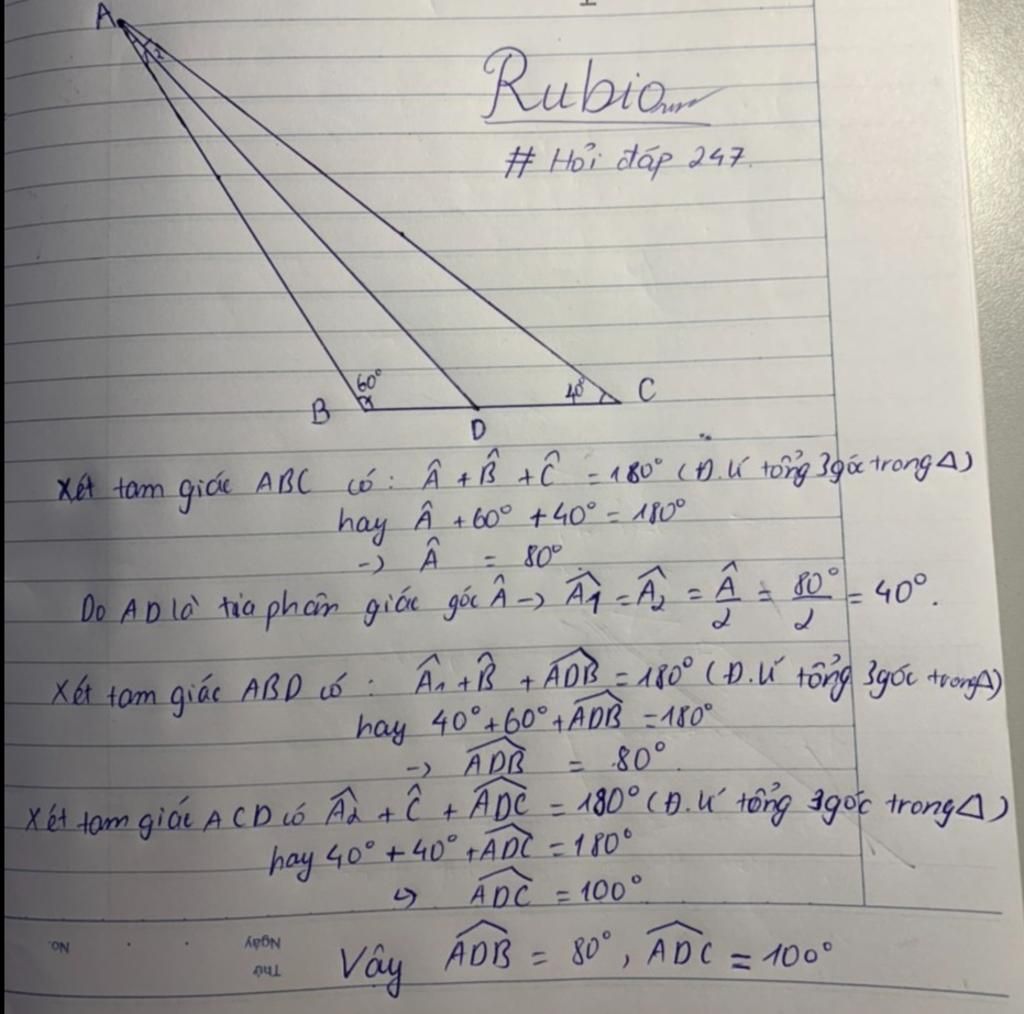 A
2
Rubio
# Hỏi đáp 247.
60°
B
D
40°
C
Xét tam giác ABC có: Â + B̂ + Ĉ = 180° (Đ.lí tổng 3góc trong Δ)
hay Â + 60° + 40° = 180°
-> Â = 80°
Do AD là tia phân giác góc Â -> Â1 = Â2 = Â/2 = 80°/2 = 40°.
Xét tam giác ABD có: Â1 + B̂ + ADB̂ = 180° (Đ.lí tổng 3góc trong Δ)
hay 40° + 60° + ADB̂ = 180°
-> ADB̂ = 80°
Xét tam giác ACD có Â2 + Ĉ + ADĈ = 180° (Đ.lí tổng 3góc trong Δ)
hay 40° + 40° + ADĈ = 180°
↪ ADĈ = 100°
No.
Ngày
Thứ
Vây ADB̂ = 80°, ADĈ = 100°